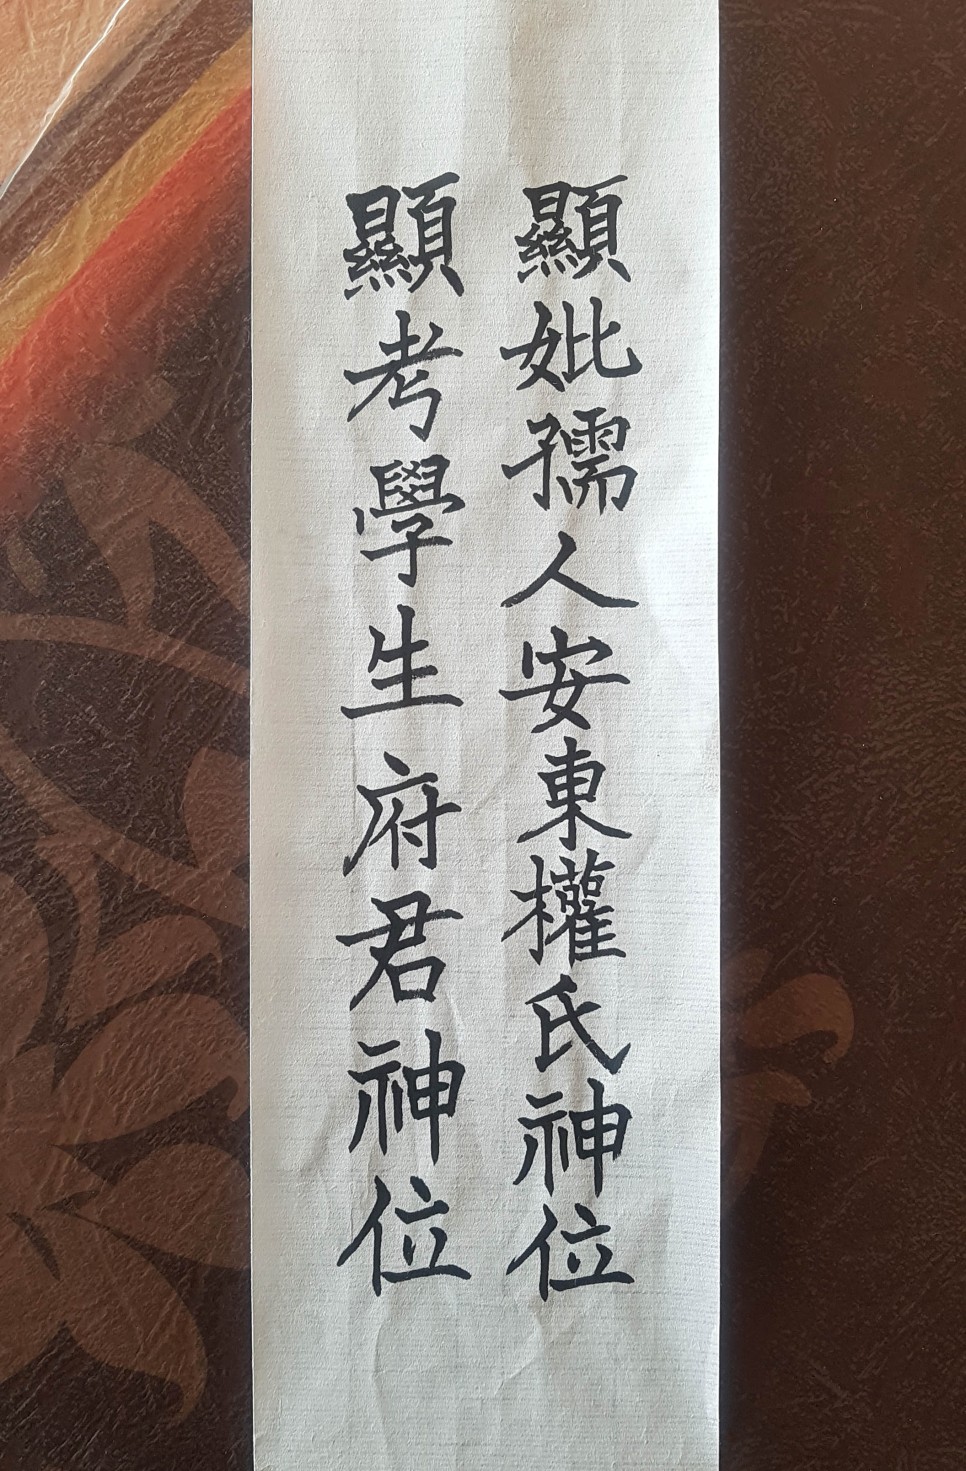 顯妣孺人安東權氏神位
顯考學生府君神位